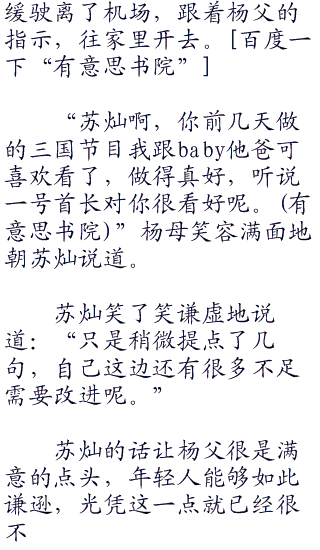 缓驶离了机场，跟着杨父的
指示，往家里开去。[百度一
下“有意思书院”]
“苏灿啊，你前几天做
的三国节目我跟baby他爸可
喜欢看了，做得真好，听说
一号首长对你很看好呢。(有
意思书院)”杨母笑容满面地
朝苏灿说道。
苏灿笑了笑谦虚地说
道：“只是稍微提点了几
句，自己这边还有很多不足
需要改进呢。”
苏灿的话让杨父很是满
意的点头，年轻人能够如此
谦逊，光凭这一点就已经很
不